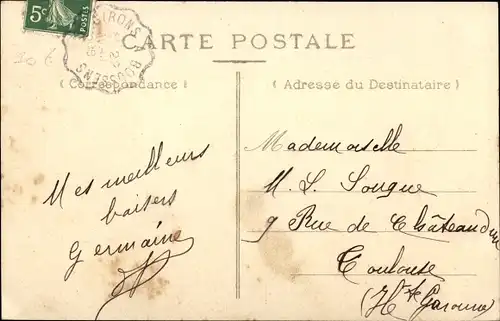 5c
POSTES
GIRONS A BOUSSENS
30 €
CARTE POSTALE
( Correspondance )
( Adresse du Destinataire )
Mes meilleurs
baisers
Germaine
Mademoiselle
M. L. Sougne
9 Rue de Châteaudun
Toulouse
(Hte Garonne)